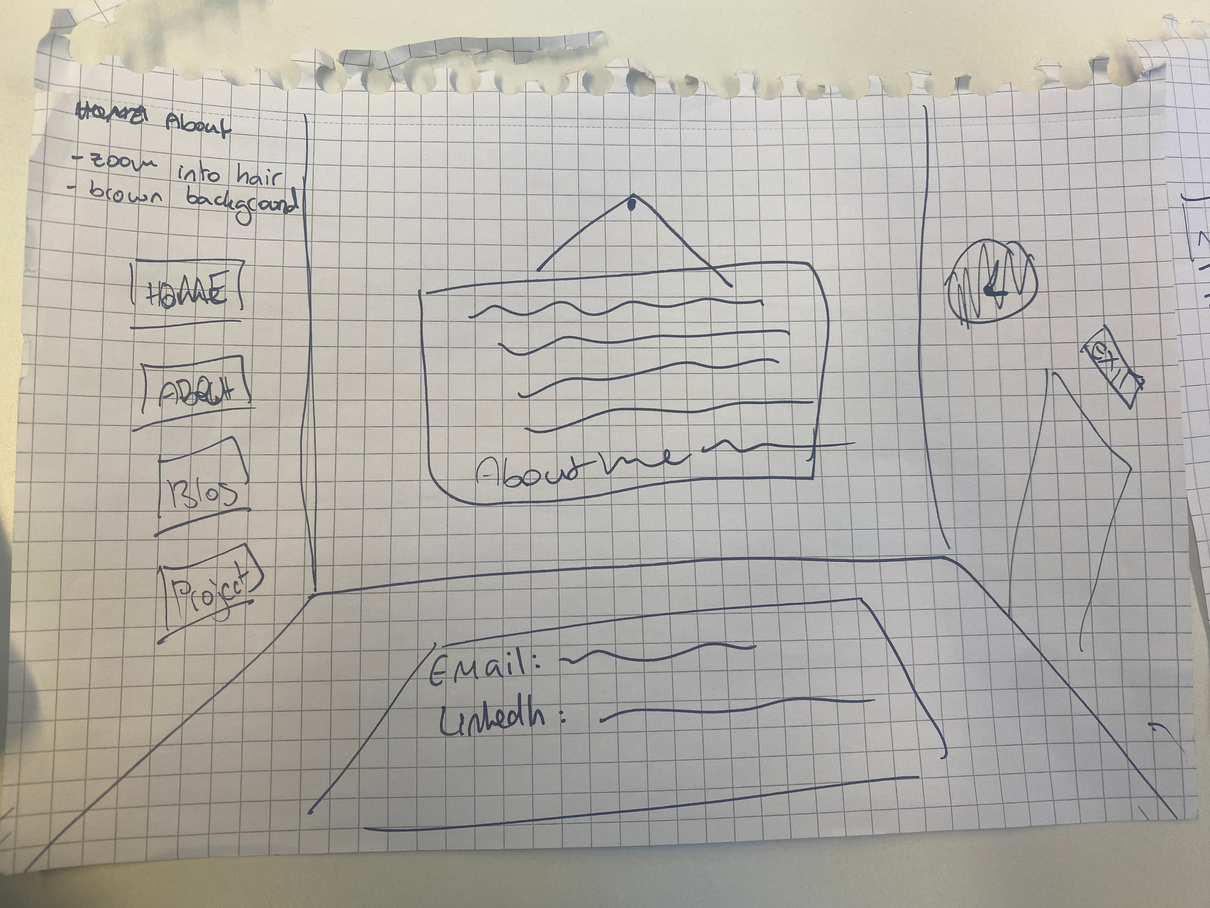 About
- zoom into hair
- brown background
HOME
ABOUT
Blog
Project
About me
Email:
LinkedIn:
exit